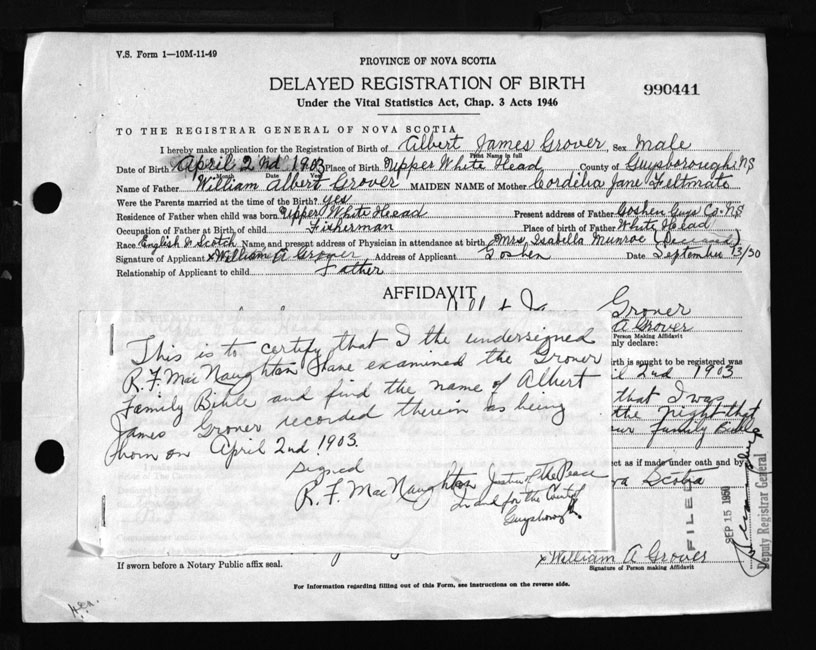 V.S. Form 1—10M-11-49
PROVINCE OF NOVA SCOTIA
DELAYED REGISTRATION OF BIRTH
990441
Under the Vital Statistics Act, Chap. 3 Acts 1946
TO THE REGISTRAR GENERAL OF NOVA SCOTIA
I hereby make application for the Registration of Birth of Albert James Grover, Sex Male
Print Name in full
Date of Birth April 2nd 1903 Place of Birth Upper White Head County of Guysborough NS
Month Date Year
Name of Father William Albert Grover MAIDEN NAME of Mother Cordelia Jane Feltmate
Were the Parents married at the time of the Birth? yes
Residence of Father when child was born Upper White Head Present address of Father Goshen Guys Co. NS
Occupation of Father at Birth of child Fisherman Place of birth of Father White Head
Race English & Scotch Name and present address of Physician in attendance at birth Mrs Isabella Munroe (Deceased)
Signature of Applicant x William A Grover Address of Applicant Goshen Date September 13/50
Relationship of Applicant to child Father
AFFIDAVIT
Grover
A Grover
Person Making Affidavit
nly declare:
irth is sought to be registered was
il 2nd 1903
that I was
the night that
our family Bible
ect as if made under oath and by
va Scotia
This is to certify that I the undersigned
R. F. MacNaughton have examined the Grover
Family Bible and find the name of Albert
James Grover recorded therein as being
born on April 2nd 1903.
Signed
R. F. MacNaughton Justice of the Peace
In and for the County of
Guysborough
FILED
SEP 15 1950
Deputy Registrar General
x William A Grover
Signature of Person making Affidavit
If sworn before a Notary Public affix seal.
For Information regarding filling out of this Form, see instructions on the reverse side.